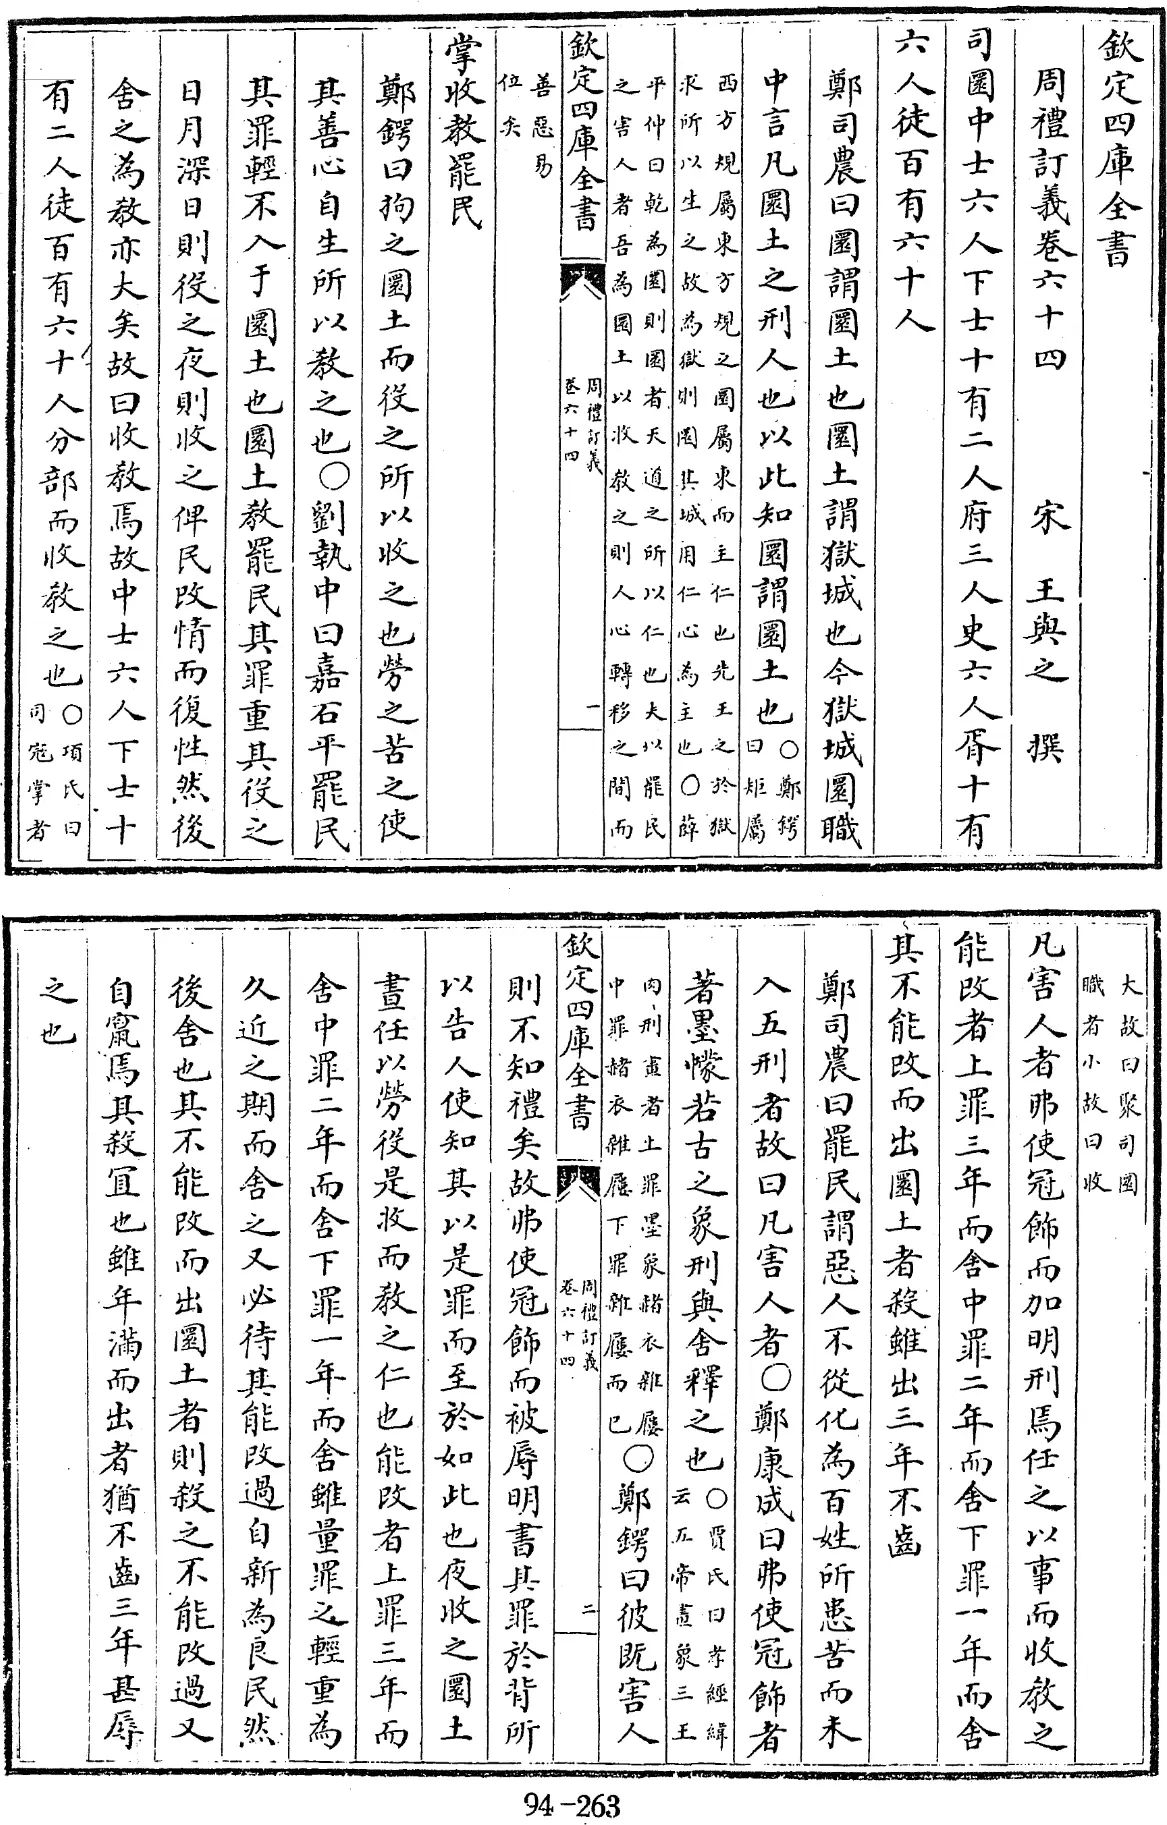 欽定四庫全書
周禮訂義卷六十四　宋　王與之　撰
司圜中士六人下士十有二人府三人史六人胥十有
六人徒百有六十人
鄭司農曰圜謂圜土也圜土謂獄城也今獄城圜職
中言凡圜土之刑人也以此知圜謂圜土也○鄭鍔
曰矩屬
西方規屬東方規之圜屬東而主仁也先王之於獄
求所以生之故為獄則圜其城用仁心為主也○薛
平仲曰乾為圜則圜者天道之所以仁也夫以罷民
之害人者吾為圜土以收教之則人心轉移之間而
欽定四庫全書
周禮訂義
卷六十四
一
善惡易
位矣
掌收教罷民
鄭鍔曰拘之圜土而役之所以收之也勞之苦之使
其善心自生所以教之也○劉執中曰嘉石平罷民
其罪輕不入于圜土也圜土教罷民其罪重其役之
日月深日則役之夜則收之俾民改情而復性然後
舍之為教亦大矣故曰收教焉故中士六人下士十
有二人徒百有六十人分部而收教之也○項氏曰
司寇掌者
大故曰聚司圜
職者小故曰收
凡害人者弗使冠飾而加明刑焉任之以事而收教之
能改者上罪三年而舍中罪二年而舍下罪一年而舍
其不能改而出圜土者殺雖出三年不齒
鄭司農曰罷民謂惡人不從化為百姓所患苦而未
入五刑者故曰凡害人者○鄭康成曰弗使冠飾者
著墨幪若古之象刑與舍釋之也○賈氏曰孝經緯
云五帝畫象三王
肉刑畫者上罪墨象赭衣雜屨
中罪赭衣雜屨下罪雜屨而已○鄭鍔曰彼既害人
欽定四庫全書
周禮訂義
卷六十四
二
則不知禮矣故弗使冠飾而被辱明書其罪於背所
以告人使知其以是罪而至於如此也夜收之圜土
晝任以勞役是收而教之仁也能改者上罪三年而
舍中罪二年而舍下罪一年而舍雖量罪之輕重為
久近之期而舍之又必待其能改過自新為良民然
後舍也其不能改而出圜土者則殺之不能改過又
自竄焉其殺宜也雖年滿而出者猶不齒三年甚辱
之也
94-263